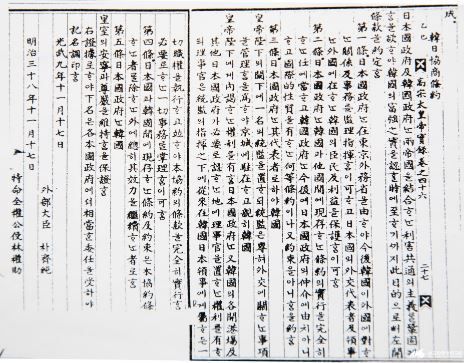 成
乙巳 高宗太皇帝實錄 卷之四十六 二十七
韓日協商條約
日本國政府及韓國政府ᄂᆞᆫ兩帝國을結合ᄒᆞᄂᆞᆫ利害共通의主義를鞏固케
言을欲ᄒᆞ야韓國의富强之實을認言時에至ᄒᆞ기ᄭᆞ지此目的으로써左開
條款을約定言
第一條日本國政府ᄂᆞᆫ在東京外務省을由ᄒᆞ야今後韓國이外國에對ᄒᆞ
ᄂᆞᆫ關係及事務를監理指揮言이可ᄒᆞ고日本國의外交代表者及領事
ᄂᆞᆫ外國에在ᄒᆞᄂᆞᆫ韓國의臣民及利益을保護言이可言
第二條日本國政府ᄂᆞᆫ韓國과他國間에現存ᄒᆞᄂᆞᆫ條約의實行을完全히ᄒᆞ
ᄂᆞᆫ任에當ᄒᆞ고韓國政府ᄂᆞᆫ今後에日本國政府의仲介에由치아니
ᄒᆞ고國際的性質을有ᄒᆞᄂᆞᆫ何等條約이나又約束을아니言을約言
第三條日本國政府ᄂᆞᆫ其代表者로ᄒᆞ야韓國
皇帝陛下의闕下에一名의統監을置ᄒᆞ되統監은專혀外交에關ᄒᆞᄂᆞᆫ事項
을管理言을爲ᄒᆞ야京城에駐在ᄒᆞ고親히韓國
皇帝陛下에게內謁ᄒᆞᄂᆞᆫ權利를有言日本國政府ᄂᆞᆫ又韓國의各開港場及
其他日本國政府가必要로認ᄒᆞᄂᆞᆫ地에理事官을置ᄒᆞᄂᆞᆫ權利를有ᄒᆞ
되理事官은統監의指揮之下에從來在韓國日本領事에게屬ᄒᆞ든一
切職權을執行ᄒᆞ고竝ᄒᆞ야本協約의條款을完全히實行言
必要로ᄒᆞᄂᆞᆫ一切事務를掌理言이可言
第四條日本國과韓國間에現存ᄒᆞᄂᆞᆫ條約及約束은本協約條
ᄒᆞᄂᆞᆫ者를除ᄒᆞᄂᆞᆫ外에總히其效力을繼續ᄒᆞᄂᆞᆫ者로言
第五條日本國政府ᄂᆞᆫ韓國
皇室의安寧과尊嚴을維持言을保證言
右證據로ᄒᆞ야下名은各本國政府에셔相當言委任을受ᄒᆞ야
記名調印言
光武九年十一月十七日
外部大臣 朴齊純
明治三十八年十一月十七日
特命全權公使林權助